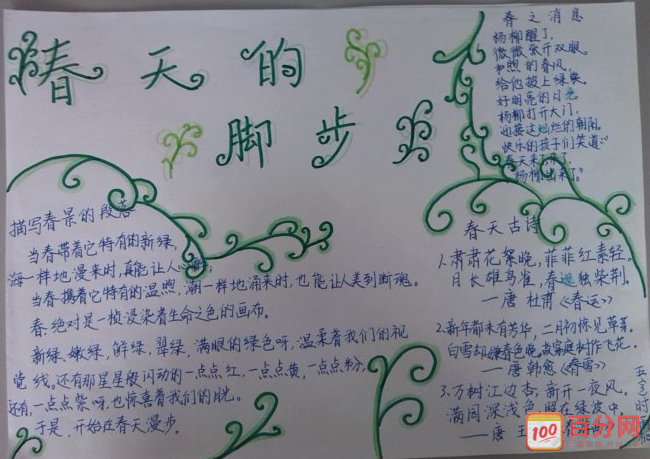 春天的
脚步
春之消息
杨柳醒了,
微微张开双眼。
和煦的春风,
给他披上绿装。
好明亮的日光
杨柳打开大门,
迎接这灿烂的朝阳。
快乐的孩子们笑道:"
春天来了,来了,
杨柳出来了。"
描写春景的段落
当春带着它特有的新绿,
海一样地漫来时,真能让人心醉;
当春携着它特有的温煦,潮一样地涌来时,也能让人美到断魂。
春绝对是一桢浸染着生命之色的画布。
新绿、嫩绿,鲜绿,翠绿,满眼的绿色呀,温柔着我们的视
觉线。还有那星星般闪动的一点点红,一点点黄,一点点粉,
还有,一点点紫呀,也惊喜着我们的眼。
于是,开始在春天漫步。
春天古诗
1.肃肃花絮晚,菲菲红素轻。
日长雄鸟雀,春远独柴荆。
—唐 杜甫《春运》
2.新年都未有芳华,二月初惊见草芽。
白雪却嫌春色晚,故穿庭树作飞花。
—唐 韩愈《春雪》
3.万树江边杏,新开一夜风。
满园深浅色,照在绿波中。
—唐 王
五
100 百分网